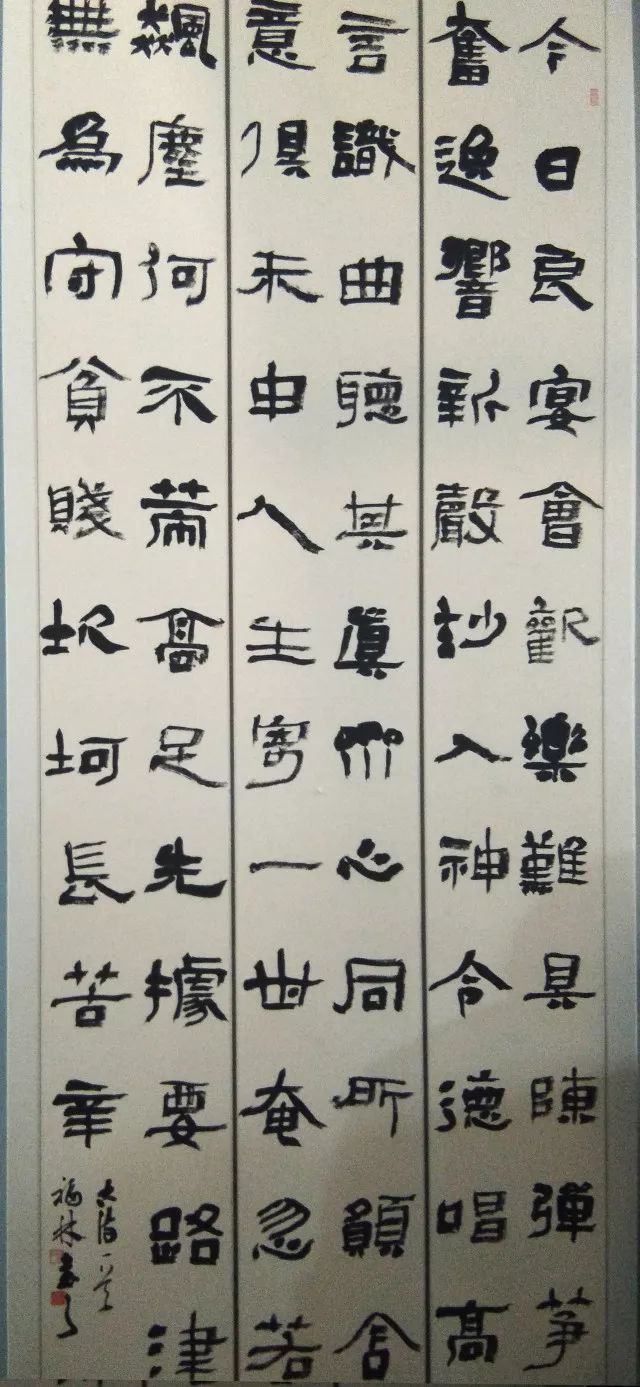 今日良宴會歡樂難具陳彈箏
奮逸響新聲妙入神令德唱高
言識曲聽其眞齊心同所願含
意俱未申人生寄一世奄忽若
飆塵何不策高足先據要路津
無爲守貧賤坎坷長苦辛
古詩一首
福林